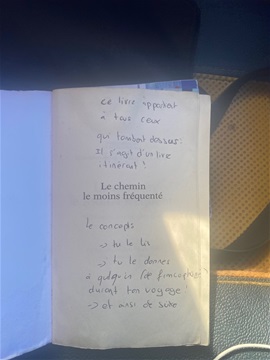 ce livre appartient
à tous ceux
qui tombent dessus.
Il s'agit d'un livre
itinérant !
Le chemin
le moins fréquenté
Le concept
-> tu le lis
-> tu le donnes
à quelqu'un (de francophone)
durant ton voyage !
-> et ainsi de suite